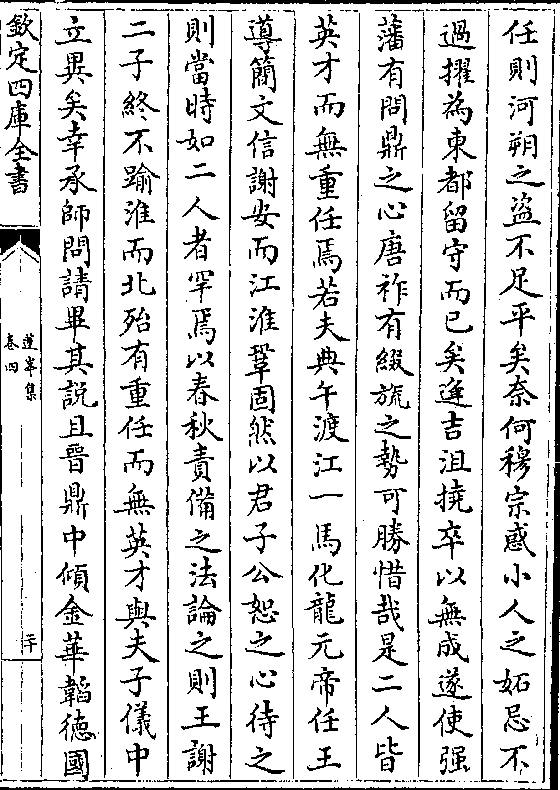 任則河朔之盗不足平矣奈何穆宗惑小人之妬忌不
過擢為東都留守而已矣逢吉沮撓卒以無成遂使强
藩有問鼎之心唐祚有綴旒之勢可勝惜哉是二人皆
英才而無重任焉若夫典午渡江一馬化龍元帝任王
導簡文信謝安而江淮鞏固然以君子公恕之心待之
則當時如二人者罕焉以春秋責備之法論之則王謝
二子終不踰淮而北殆有重任而無英才與夫子儀中
立異矣幸承師問請畢其說且晉鼎中傾金華韜徳國
欽定四庫全書
蓮峯集
卷四
二十